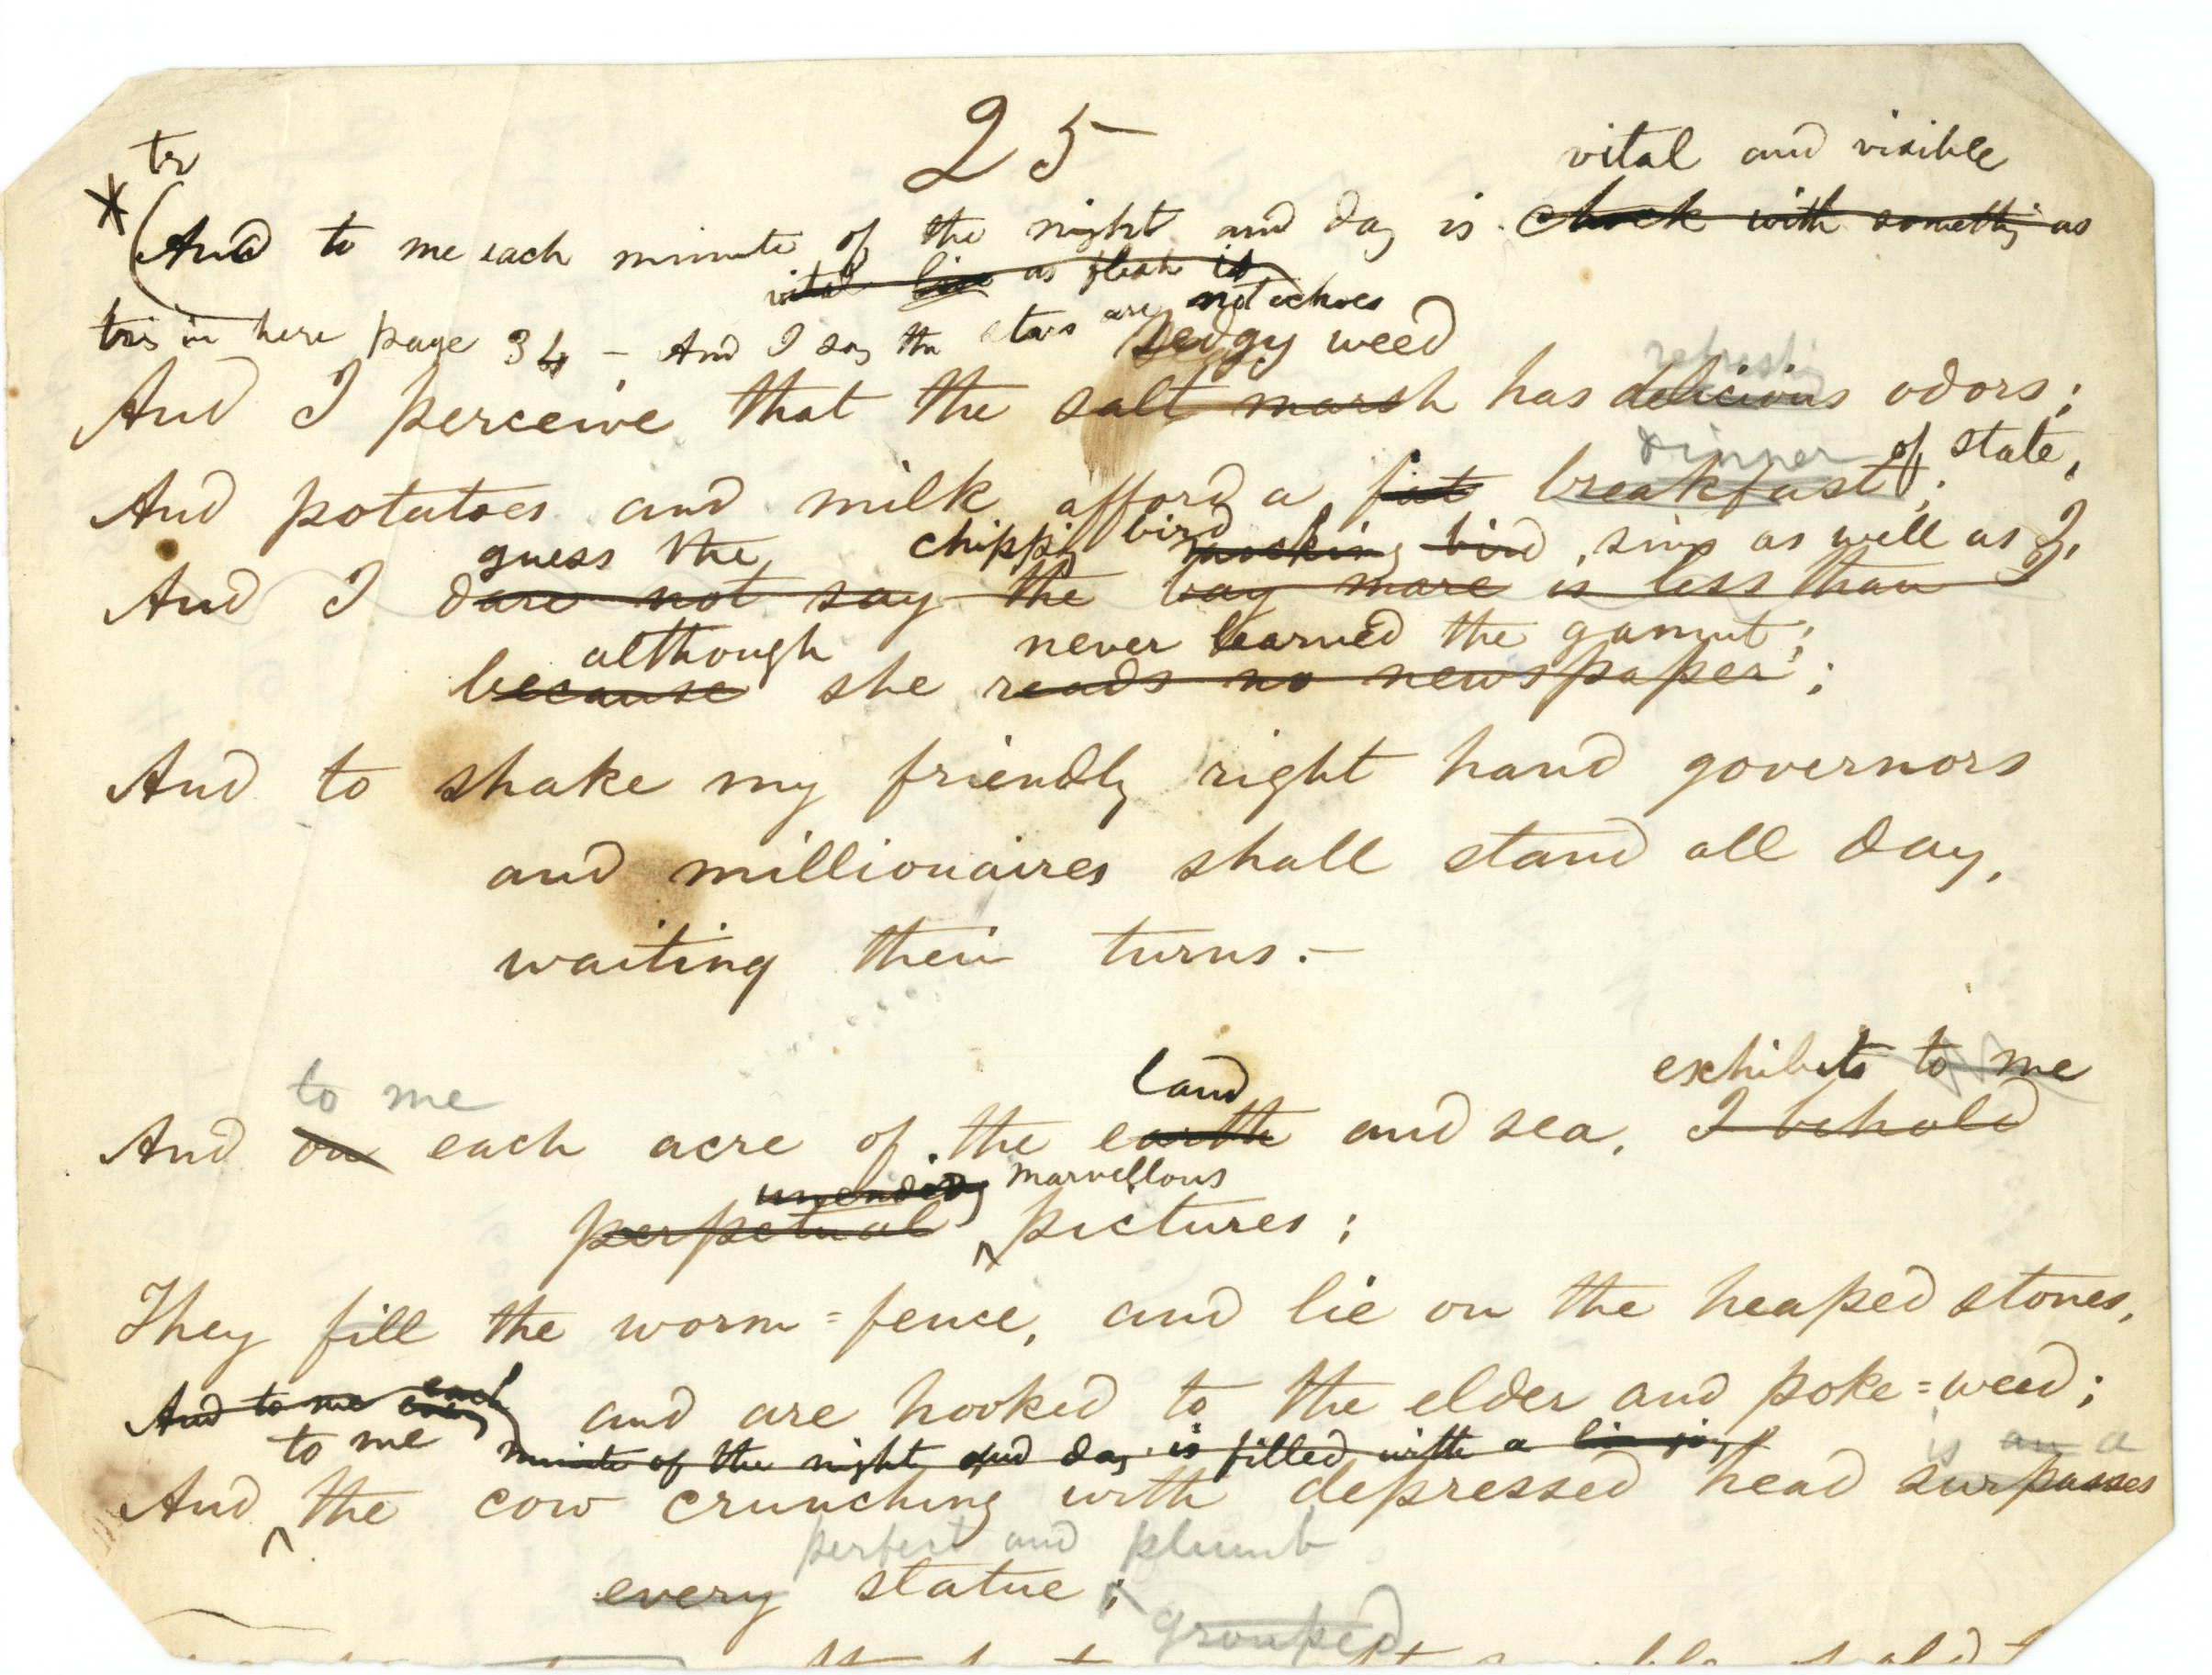 25
tr
vital and visible
* (And to me each minute of the night and day is chock with something as
vital live as flesh is
tr in here page 34 – And I say the stars are not echoes
sedgy weed
refreshing
And I perceive that the salt marsh has delicious odors;
dinner of state,
And potatoes and milk afford a fit breakfast;
guess the chipping bird mocking bird sings as well as I,
And I dare not say the bay mare is less than I
although never learned the gamut;
because she reads no newspaper;
And to shake my friendly right hand governors
and millionaires shall stand all day,
waiting their turns.–
to me land exhibits to me
And on each acre of the earth and sea, I behold
unending marvellous
perpetual ^ pictures;
They fill the worm=fence, and lie on the heaped stones,
And to me every each
and are hooked to the elder and poke=weed;
to me minute of the night and day is filled with a joy
is an a
And ^ the cow crunching with depressed head surpasses
perfect and plumb
every statue;
grouped